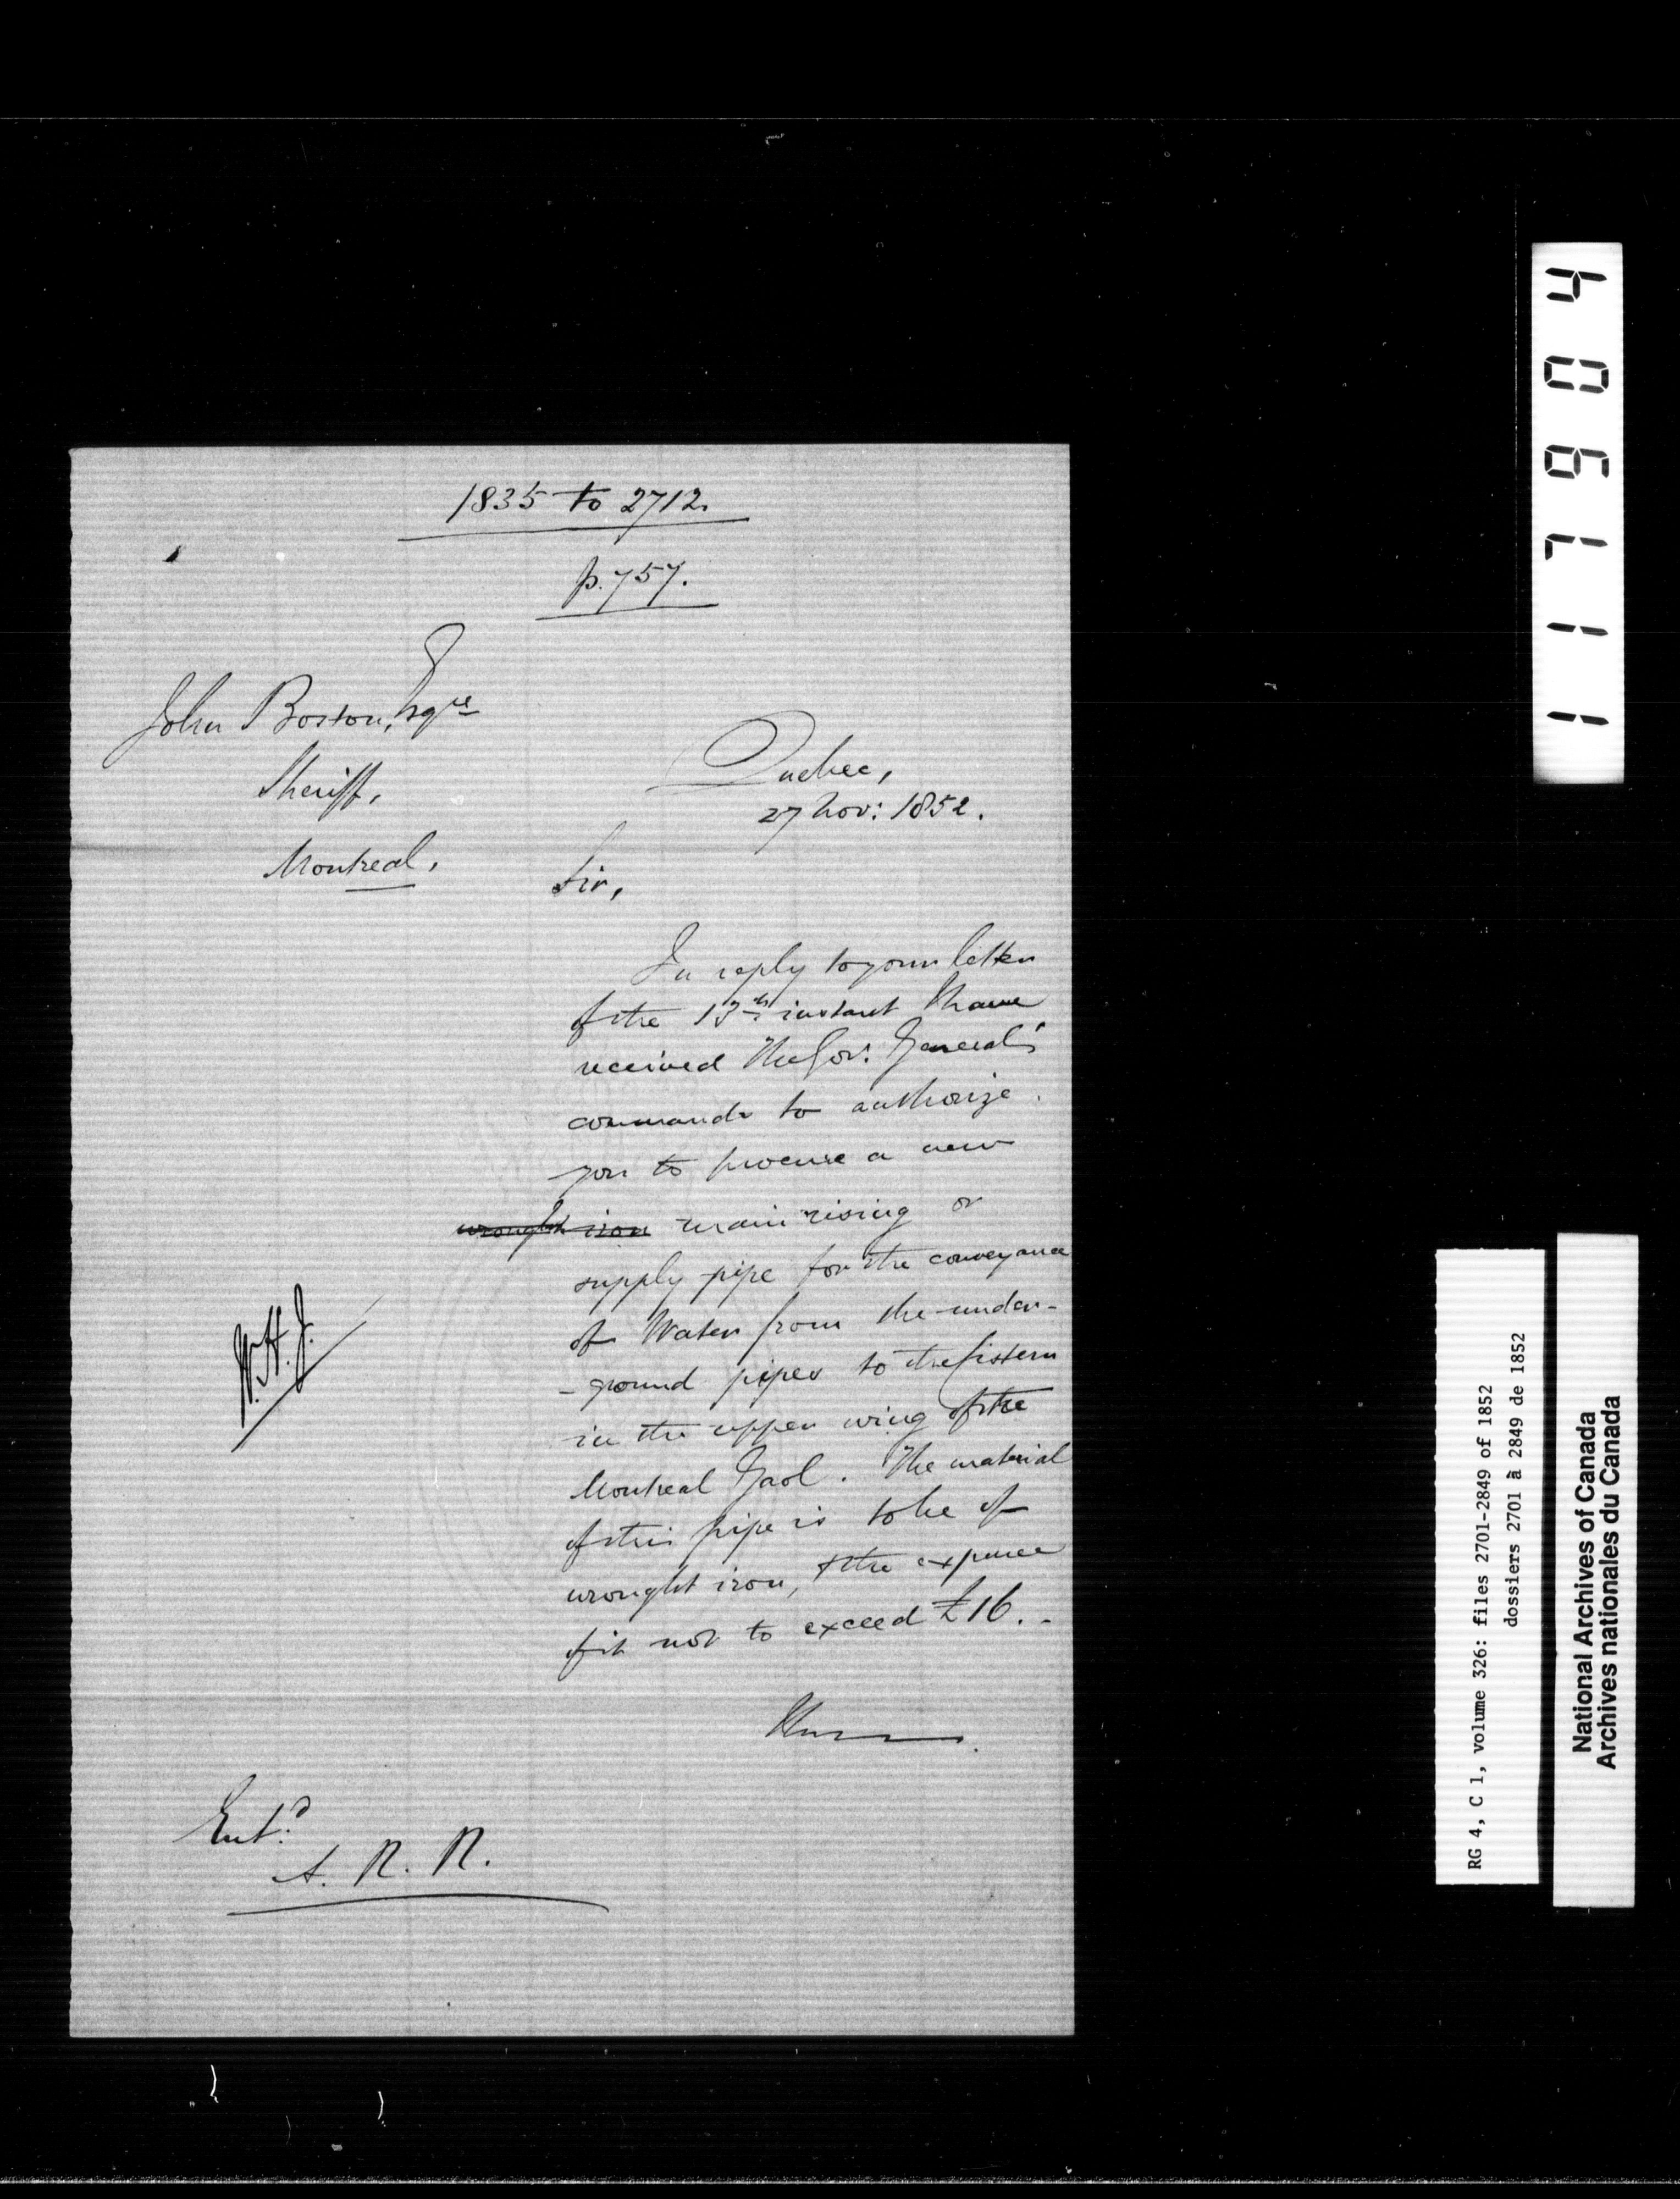 1835 to 2712.
p. 757.
John Boston, Esqre
Sheriff,
Montreal.
Quebec,
27 Nov: 1852.
Sir,
In reply to your letter
of the 13th instant I have
received the Gov: General's
commands to authorize
you to procure a new
wrought iron main rising or
supply pipe for the conveyance
of Water from the under-
-ground pipes to the Cistern
in the upper wing of the
Montreal Gaol. The material
of this pipe is to be of
wrought iron, & the expence
of it not to exceed £16.-
W. H. J.
Entd
A. R. R.
117904
RG 4, C 1, volume 326: files 2701-2849 of 1852
dossiers 2701 à 2849 de 1852
National Archives of Canada
Archives nationales du Canada